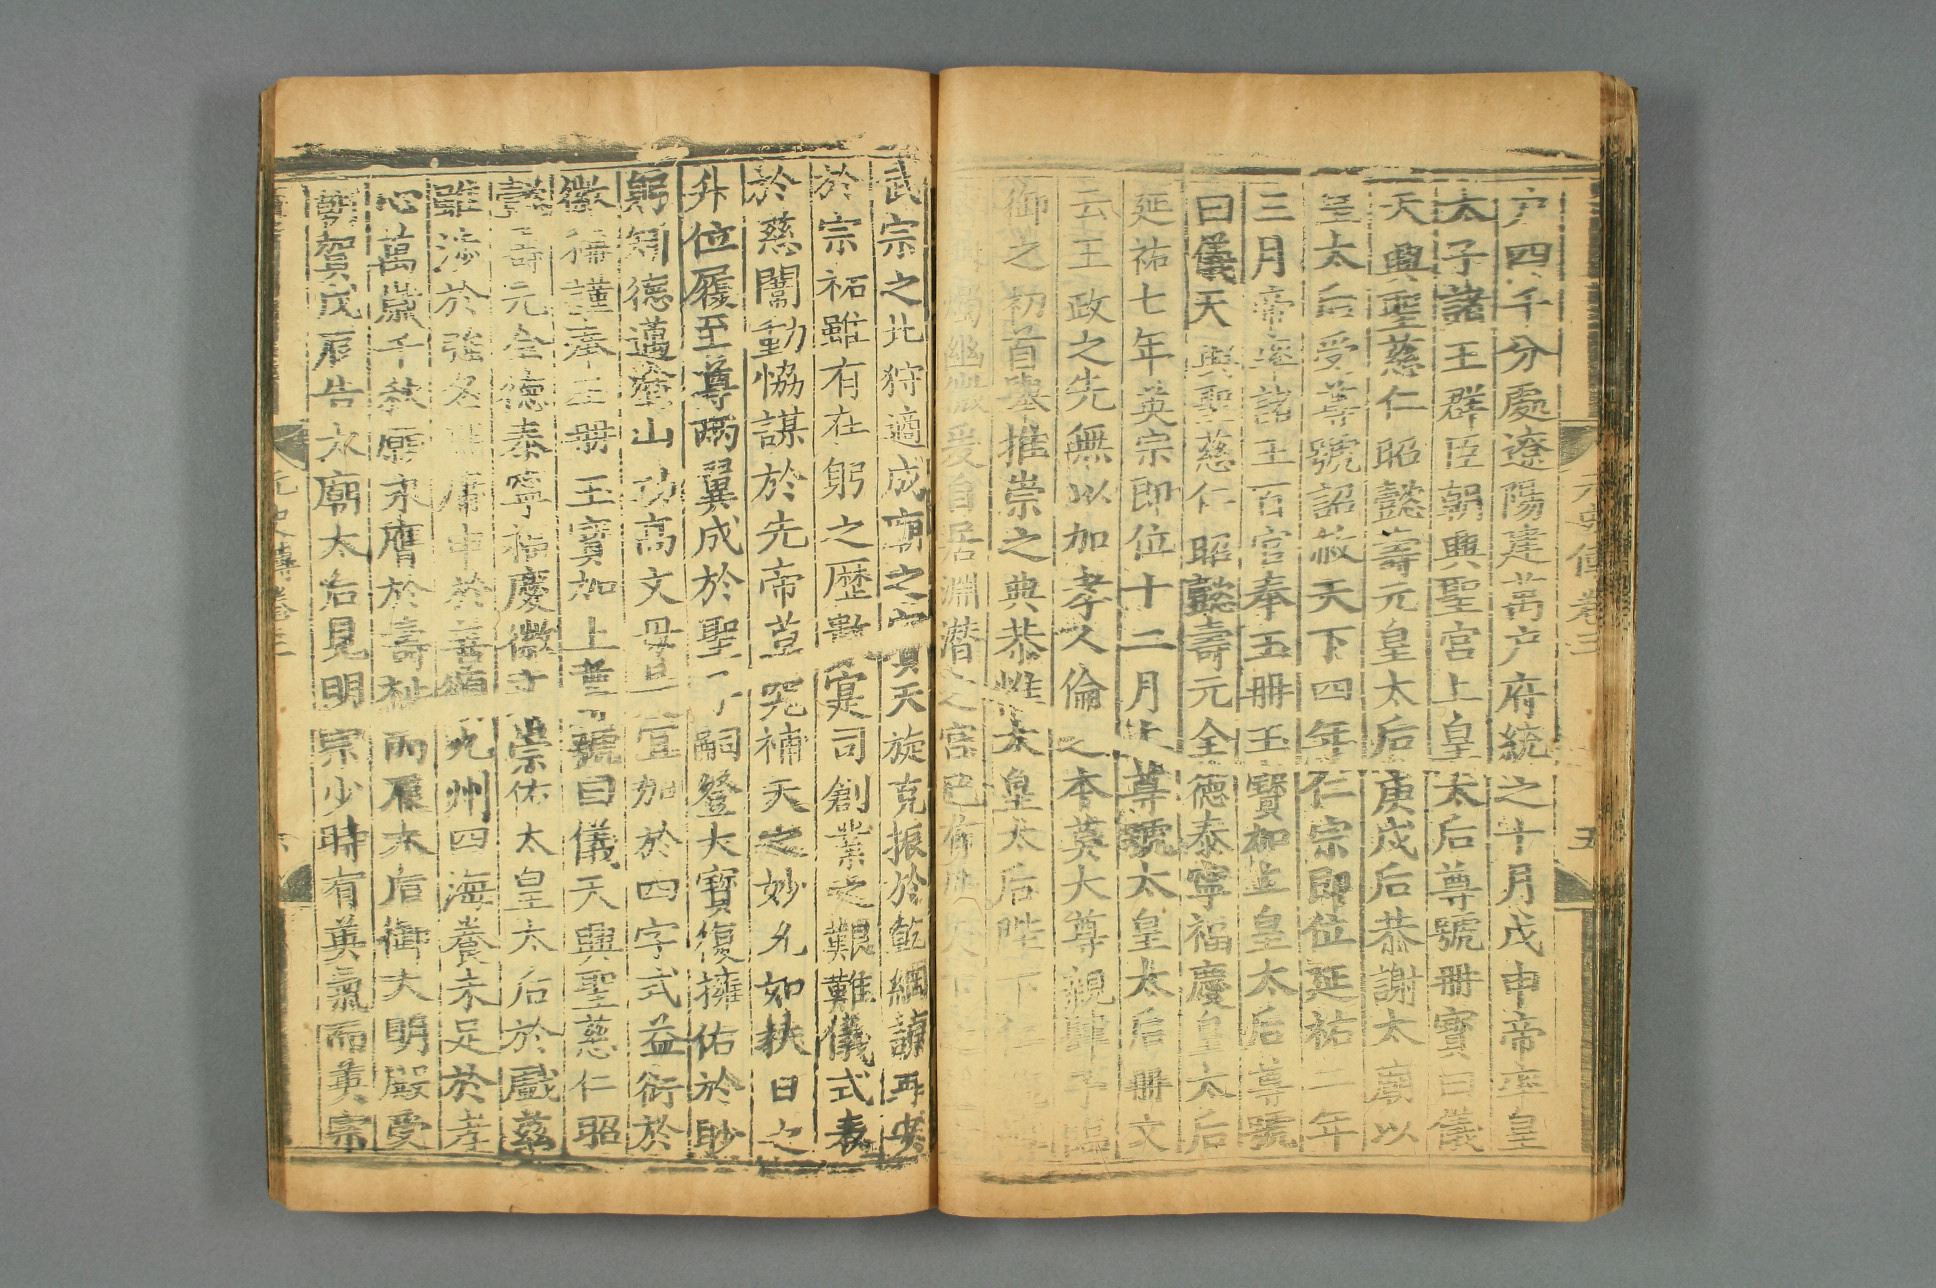 户四千分處遼陽建萬户府統之十月戊申帝率皇
太子諸王群臣朝興聖宮上皇太后尊號册寶曰儀
天興聖慈仁昭懿壽元皇太后庚戌后恭謝太廟以
皇太后受尊號詔赦天下四年仁宗即位延祐二年
三月帝率諸王百官奉玉册玉寶加上皇太后尊號
曰儀天興聖慈仁昭懿壽元全德泰寧福慶皇太后
延祐七年英宗即位十二月上尊號太皇太后册文
云王政之先無以加孝人倫之本莫大尊親肆予臨
御之初首舉推崇之典恭惟太皇太后陛下仁
燭幽微爰自居淵潛之宮已有
元史傳卷三
五
武宗之北狩適成廟之賓天旋克振於乾綱諒再安
於宗祏雖有在躬之歷數寔司創業之艱難儀式表
於慈闈動協謀於先帝莫究補天之妙允如扶日之
升位履至尊兩翼成於聖子嗣登大寶復擁佑於眇
躬矧德邁塗山功高文母是宜加於四字式益衍於
徽稱謹奉玉册玉寶加上尊號曰儀天興聖慈仁昭
懿壽元全德泰寧福慶徽文崇佑太皇太后於戲茲
雖涉於強名庸申於善頌九州四海養未足於孝
心萬歲千秋願永膺於壽祉而后御大明殿受
朝賀戊辰告太廟太后見明宗少時有英氣而英宗
元史傳卷三
六